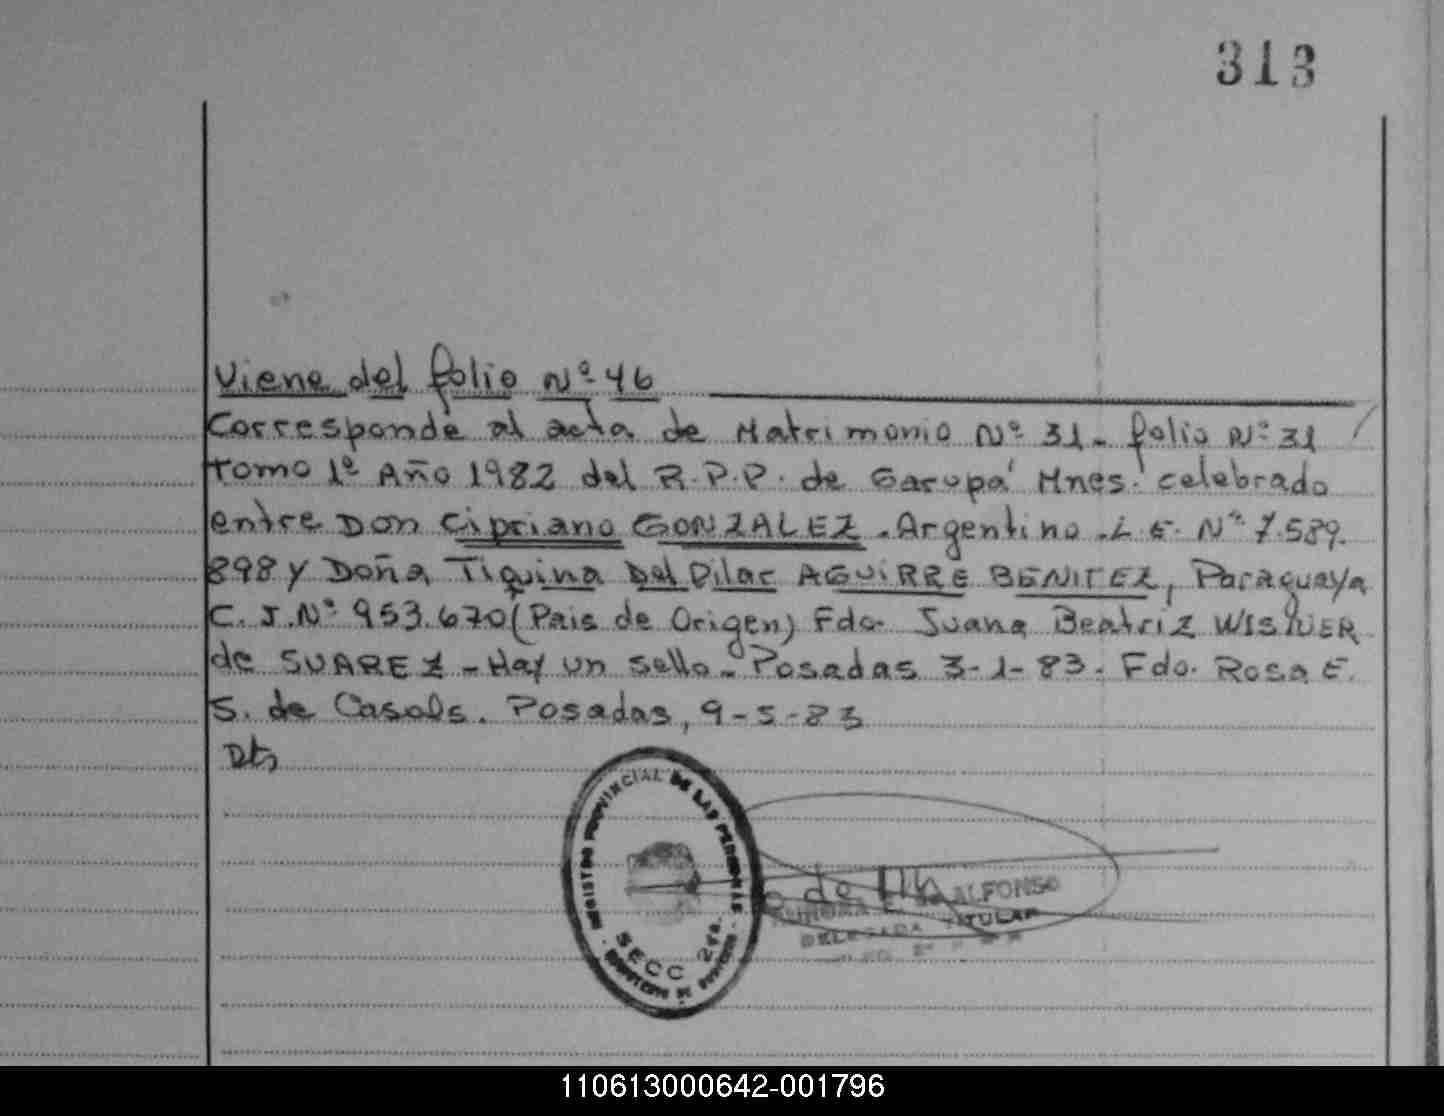 313
Viene del folio Nº 46
Corresponde al acta de Matrimonio Nº 31 - folio Nº 31
tomo 1º Año 1982 del R.P.P. de Garupá Mnes. celebrado
entre Don Cipriano GONZALEZ - Argentino - L.E. Nº 7.589.
898 y Doña Tiquina Del Pilar AGUIRRE BENITEZ, Paraguaya
C.I. Nº 953.670 (Pais de Origen) Fdo. Juana Beatriz WISNER
de SUAREZ - Hay un sello - Posadas 3-1-83. Fdo. Rosa E.
S. de Casals. Posadas, 9-5-83
REGISTRO PROVINCIAL DE LAS PERSONAS
SECC 2da.
ALFONSO
DELEGADA TITULAR
110613000642-001796